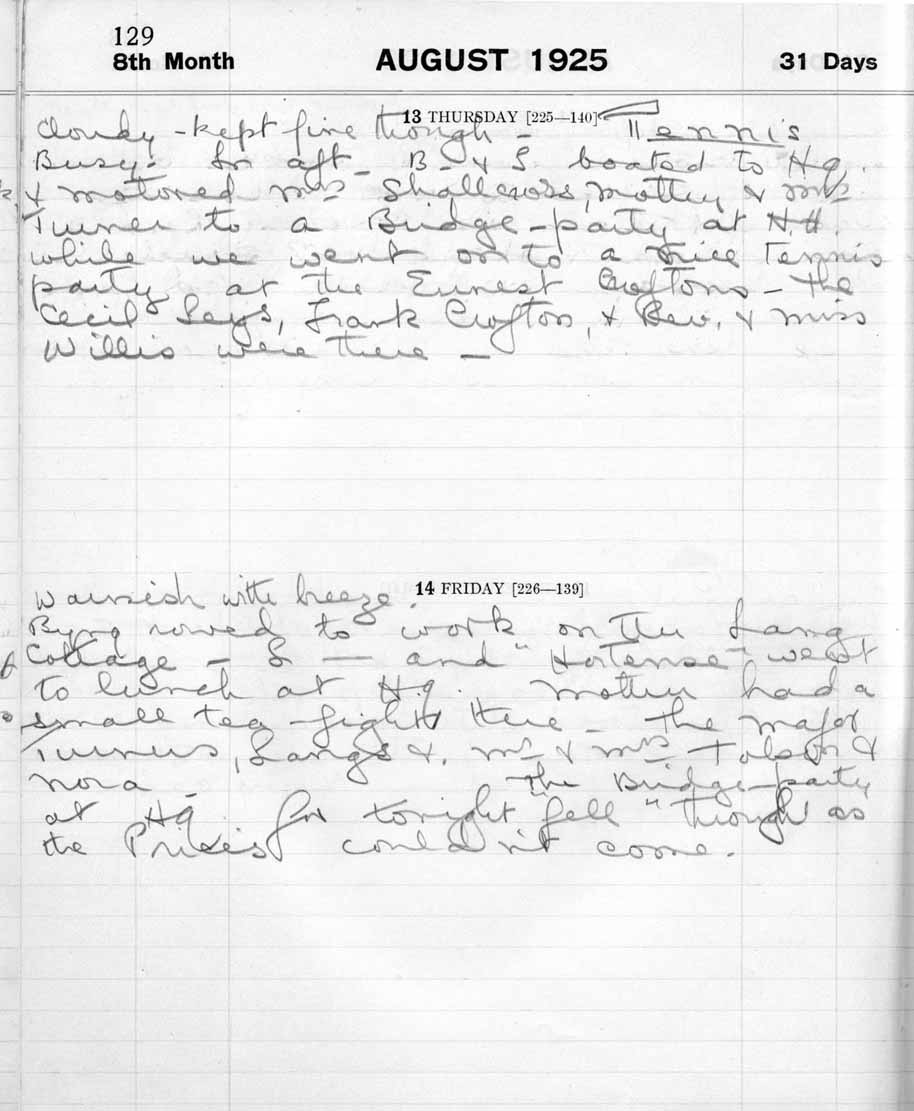 129
8th Month AUGUST 1925 31 Days
13 THURSDAY [225—140]
Cloudy - kept fine though - Tennis
Busy. In aft - B - & I boated to Hq.
& motored Mrs Shallcross, Mother & Mrs
Turner to a Bridge-party at HH
while we went on to a nice Tennis
party at the Ernest Croftons - the
Cecil Leys, Frank Crofton, & Bev. & Miss
Willis were there -
14 FRIDAY [226—139]
Warmish with breeze.
Byng rowed to work on the Lang
Cottage - I — and "Hortense" went
to lunch at Hq. Mother had a
small tea-fight there - the Major
Turners, Langs &. Mr & Mrs Tolson &
Nora - The Bridge-party
at Hq for tonight "fell" through as
the Prices couldn't come.